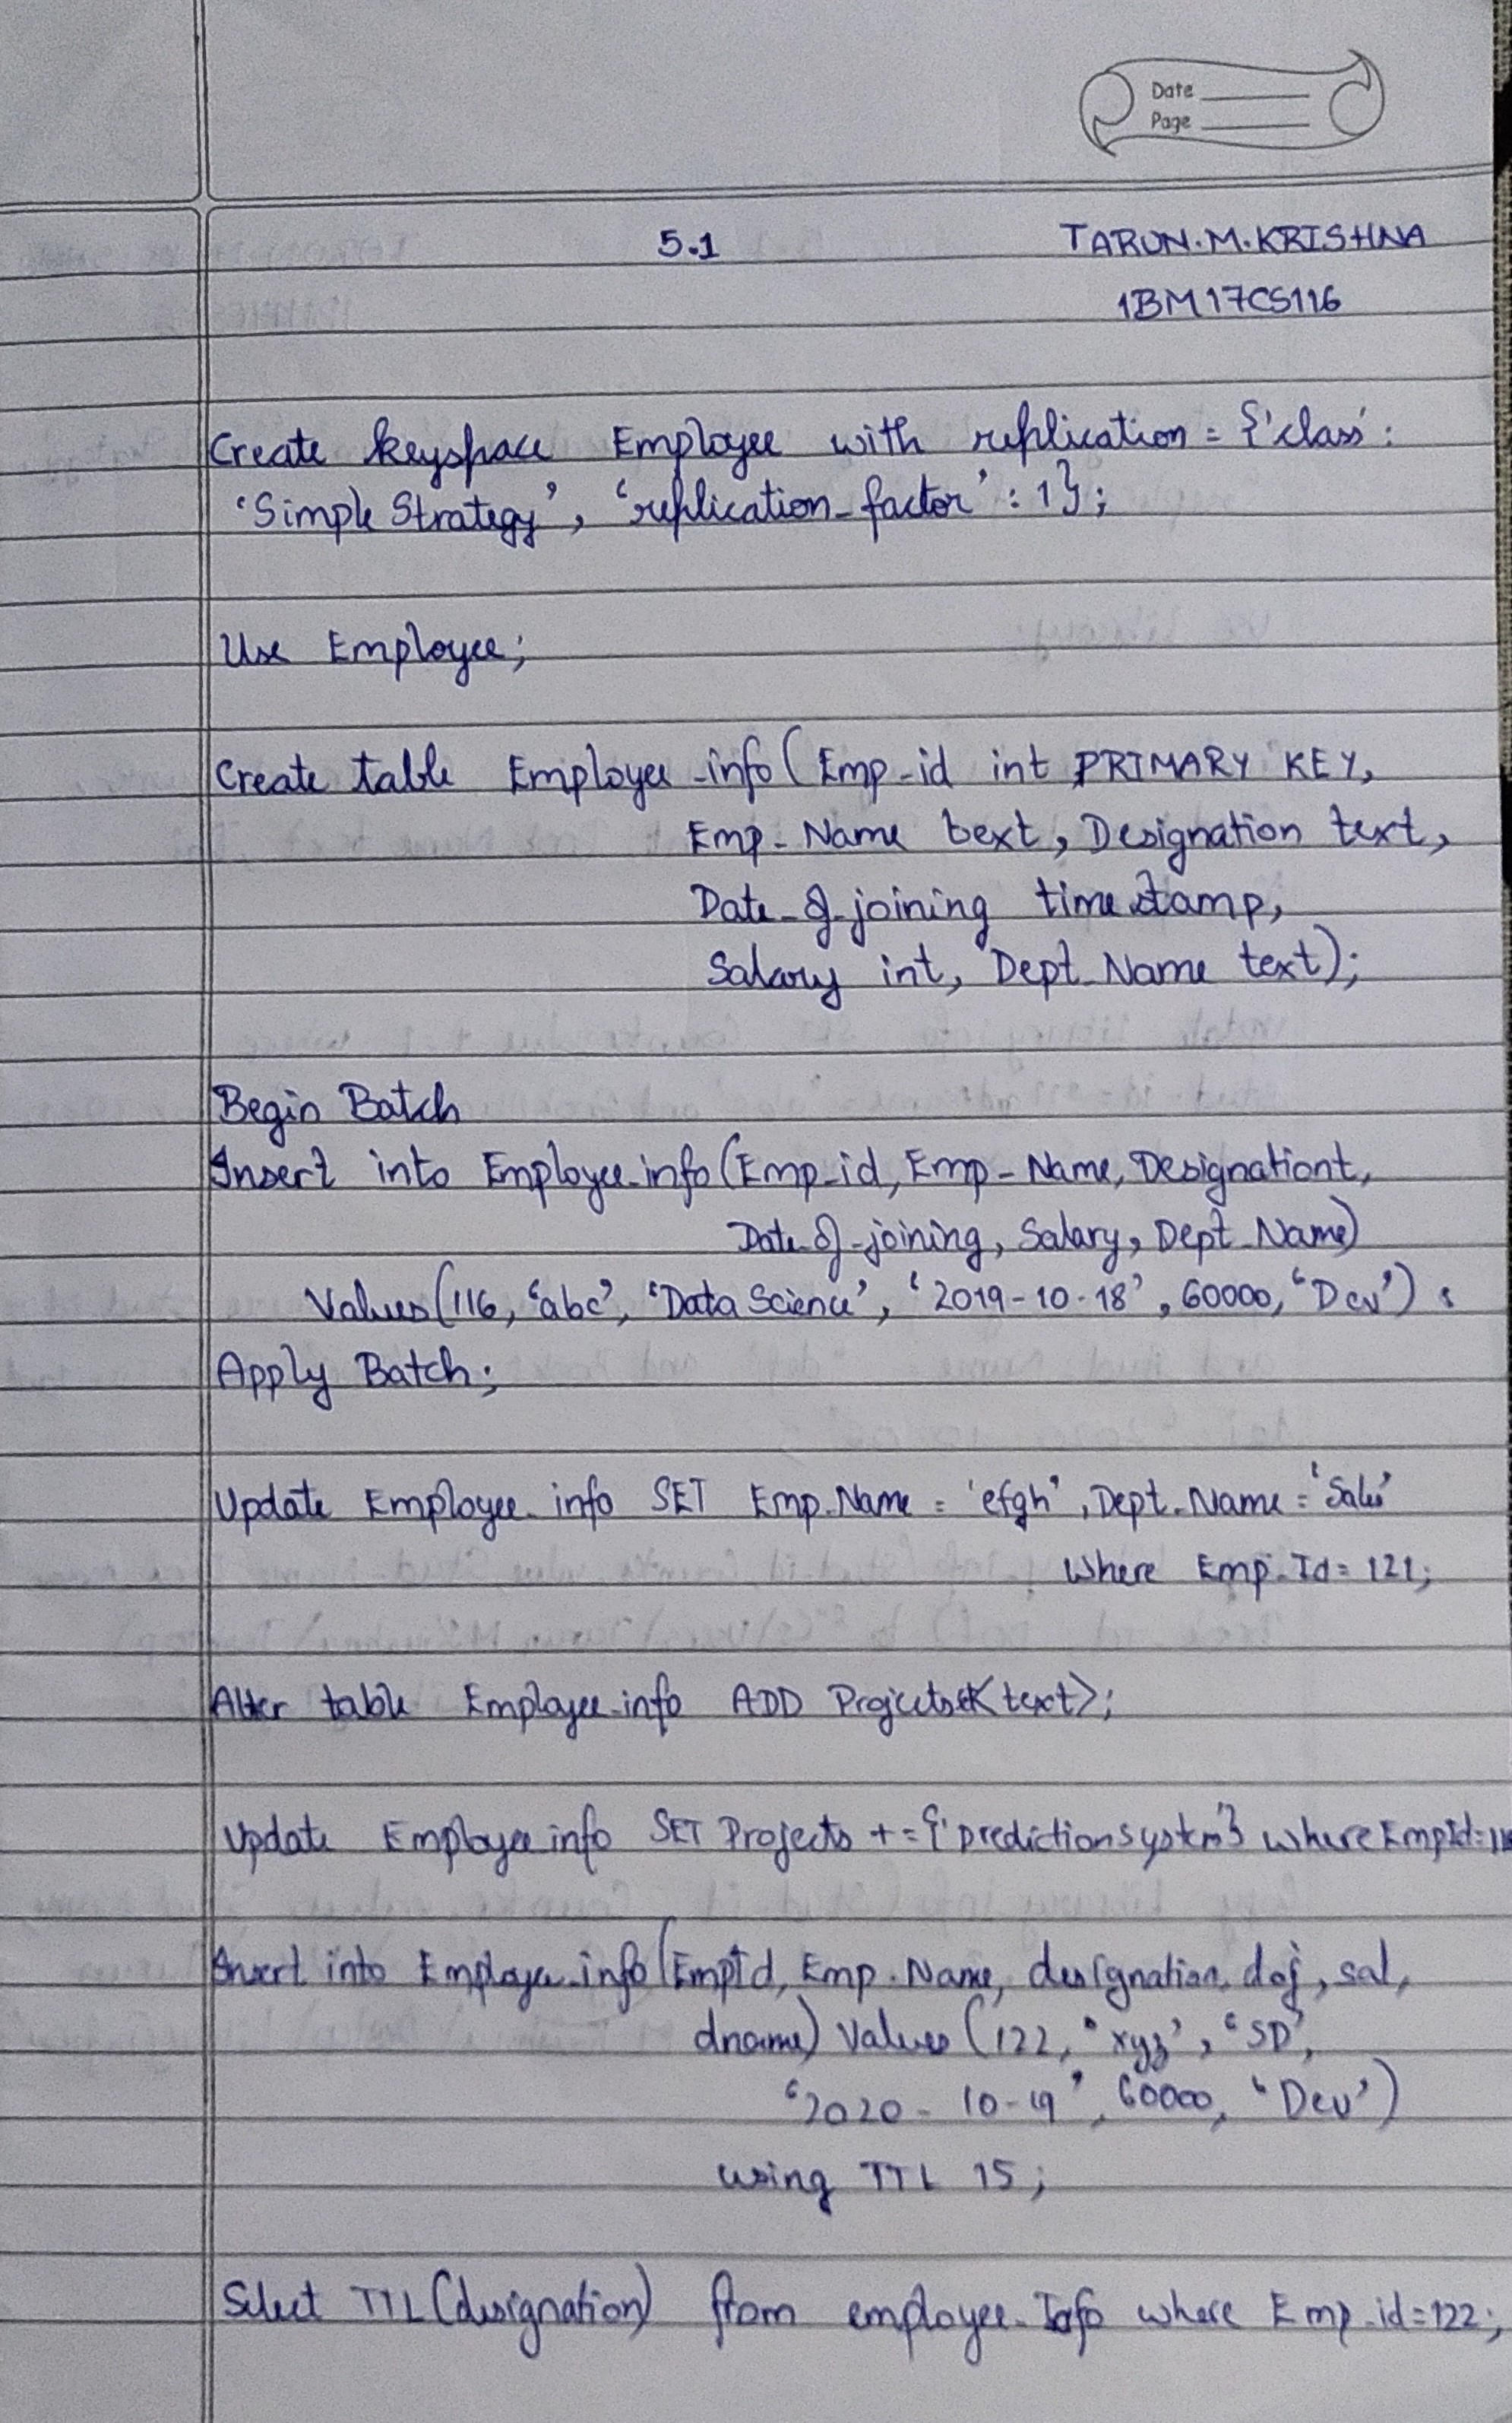 Date
Page
5.1 TARUN.M.KRISHNA
1BM17CS116
Create keyspace Employee with replication = {'class':
'Simple Strategy', 'replication_factor' : 1};
Use Employee;
Create table Employee_info (Emp_id int PRIMARY KEY,
Emp_Name text, Designation text,
Date_of_joining timestamp,
Salary int, Dept_Name text);
Begin Batch
Insert into Employee_info (Emp_id, Emp_Name, Designationt,
Date_of_joining, Salary, Dept_Name)
Values (116, 'abc', 'Data Science', '2019-10-18', 60000, 'Dev')
Apply Batch;
Update Employee_info SET Emp_Name = 'efgh', Dept_Name = 'Sales'
Where Emp_Id = 121;
Alter table Employee_info ADD <text>;
Update Employee_info SET Projects += {'prediction system'} where EmpId =
Insert into Employee_info (EmpId, Emp_Name, designation, doj, sal,
dname) Values (122, 'xyz', 'SD',
'2020-10-19', 60000, 'Dev')
using TTL 15;
Select TTL (designation) from employee_Info where Emp_id = 122;